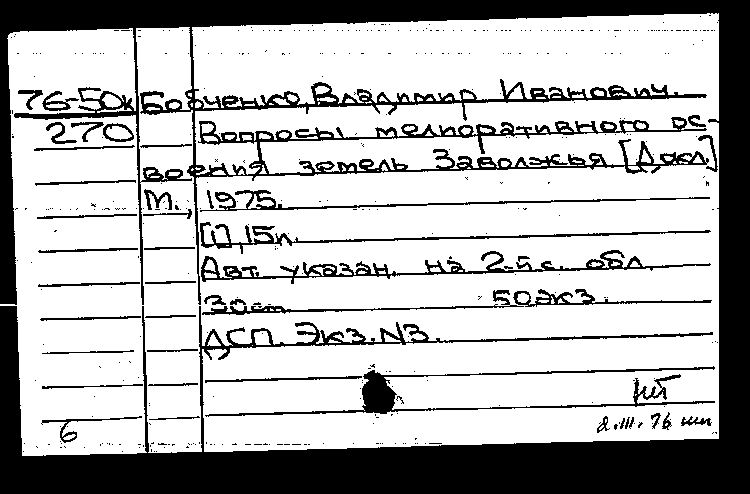 76-50к Бобченко, Владимир Иванович.
270 Вопросы мелиоративного ос-
воения земель Заволжья [Докл.]
М., 1975.
[1], 15л.
Авт. указан. на 2-й с. обл.
30см. 50экз.
ДСП. Экз. N3.
6
2.III.76